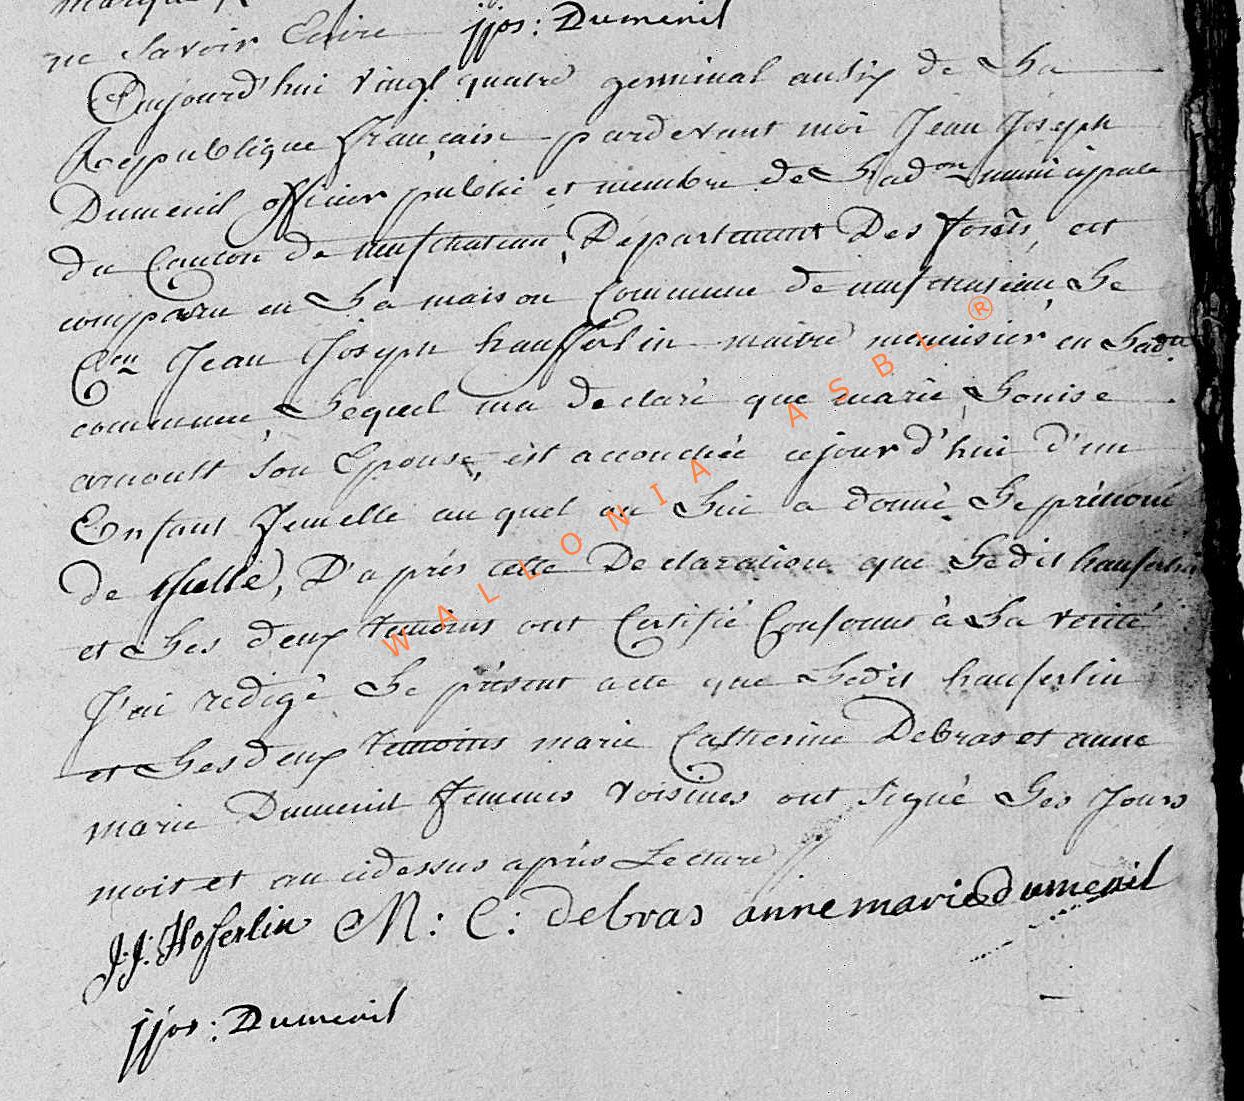 marque
ne Savoir Ecrire jjos: Dumenil
Aujourd'hui vingt quatre germinal an six de La
Republique française pardevant moi Jean Joseph
Dumenil officier public et membre de L'adon municipale
du Canton de neufchateau, Departement Des forêts, est
comparu en La maison Commune de neufchateau, Le
Cen Jean Joseph haufferlin maitre menuisier en Ladte
commune, Lequel m'a declaré que marie Louise
arnoult son Epouse, est accouchée cejourd'hui d'un
Enfant femelle auquel on Lui a donné Le prénom
de D'après cette Declaration que Ledit hauferlin
et Les deux temoins ont Certifié Conforme à La verité
J'ai redigé Le présent acte que Ledit hauferlin
et Les deux temoins marie Catherine Debras et anne
marie Dumenil femmes voisines ont signé Les Jours
mois et an cidessus après Lecture //
J:J: Hoferlin M: C: debras anne marie Dumenil
jjos: Dumenil
WALLONIA ASBL ®